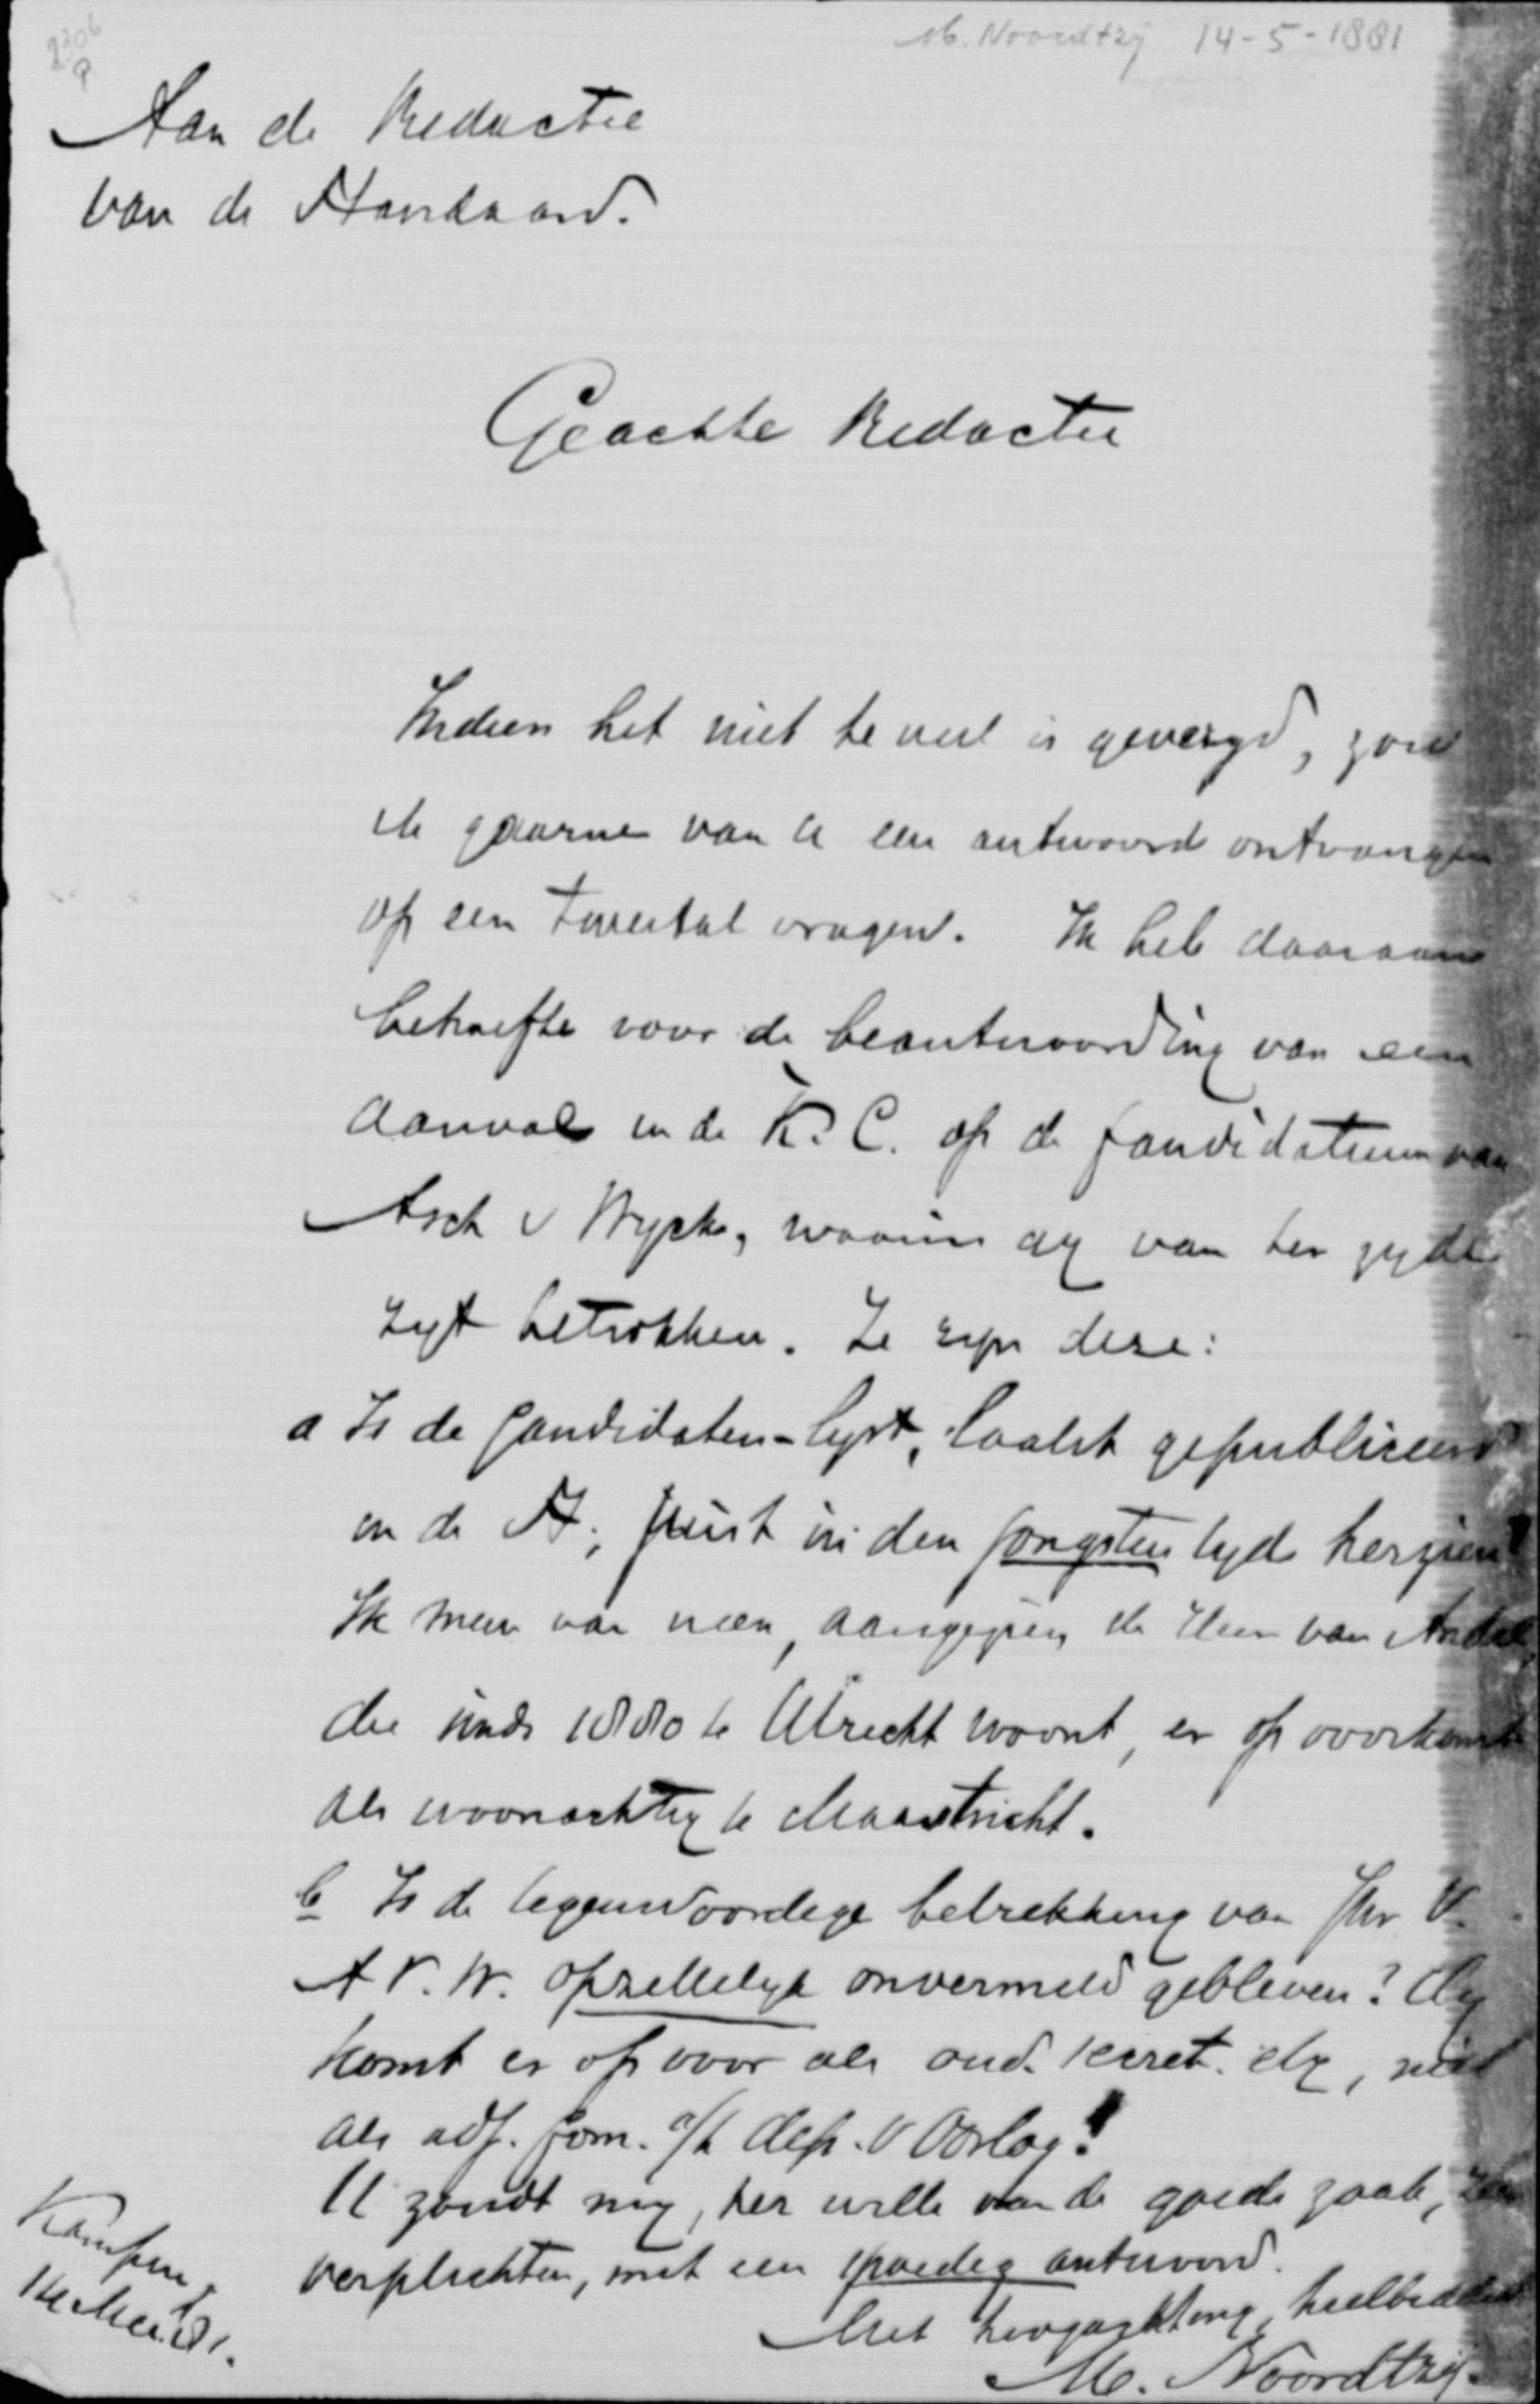 2306
M. Noordtzij 14-5-1881
Aan de Redactie
van de Standaard.
Geachte Redactie
Indien het niet te veel is gevergd, zou
ik gaarne van U een antwoord ontvangen
op een tweetal vragen. Ik heb daaraan
behoefte voor de beantwoording van een
aanval in de K. C. op de Candidatuur van
Asch v Wyck, waarin gy van ter zyde
zyt betrokken. Ze zyn deze:
a Is de Candidaten-lyst, laatst gepubliceerd
in de St., juist in den jongsten tyd herzien?
Ik meen van neen, aangezien de Heer van Andel,
die sinds 1880 te Utrecht woont, er op voorkomt
als woonachtig te Maastricht.
b Is de tegenwoordige betrekking van Jhr V.
A V. W. opzettelyk onvermeld gebleven? Hy
komt er op voor als oud. secret. etc, niet
als adj. Com. a/h dep. v Oorlog!
U zoudt my, ter wille van de goede zaak, zeer
verplichten, met een spoedig antwoord.
Met hoogachting, heilbiddend
M. Noordtzij.
Kampen,
14 Mei 81.